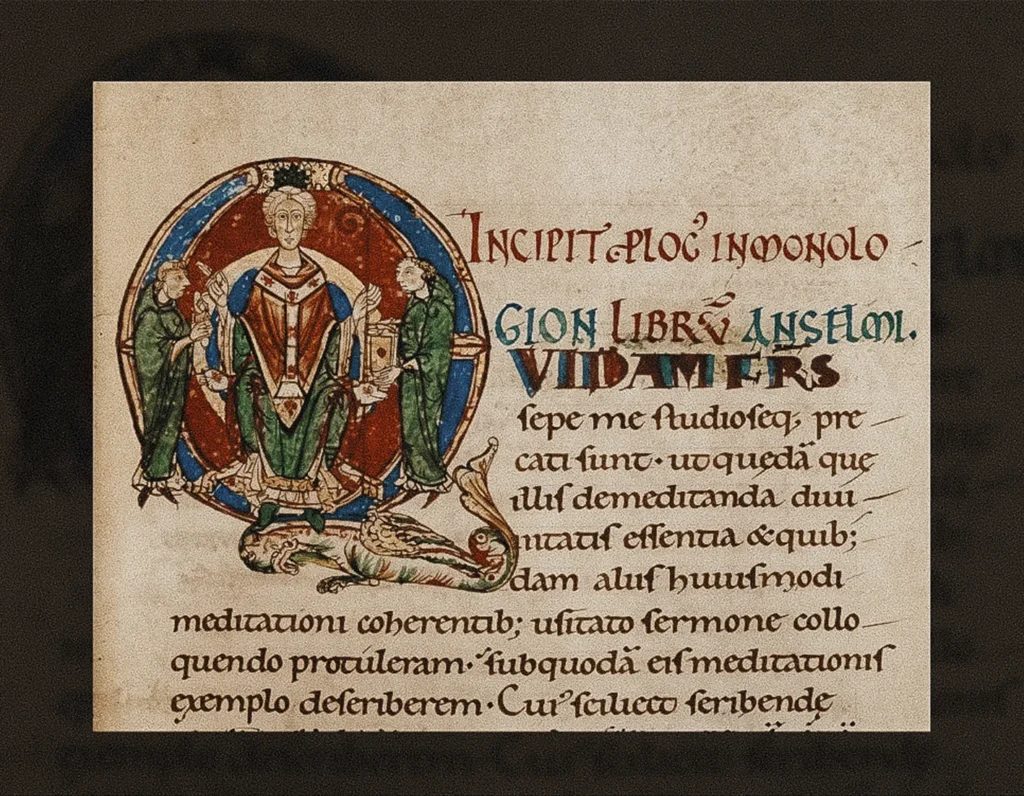 INCIPIT PLOG' IN MONOLO
GION LIBRŪ ANSELMI.
QVIDAM FRS
sepe me studioseq; pre
cati sunt · ut quędā quę
illis demeditanda diui
nitatis essentia & quib;
dam aliis huiusmodi
meditationi coherentib; usitato sermone collo
quendo protuleram · sub quodā eis meditationis
exemplo describerem · Cui' scilicet scribendę